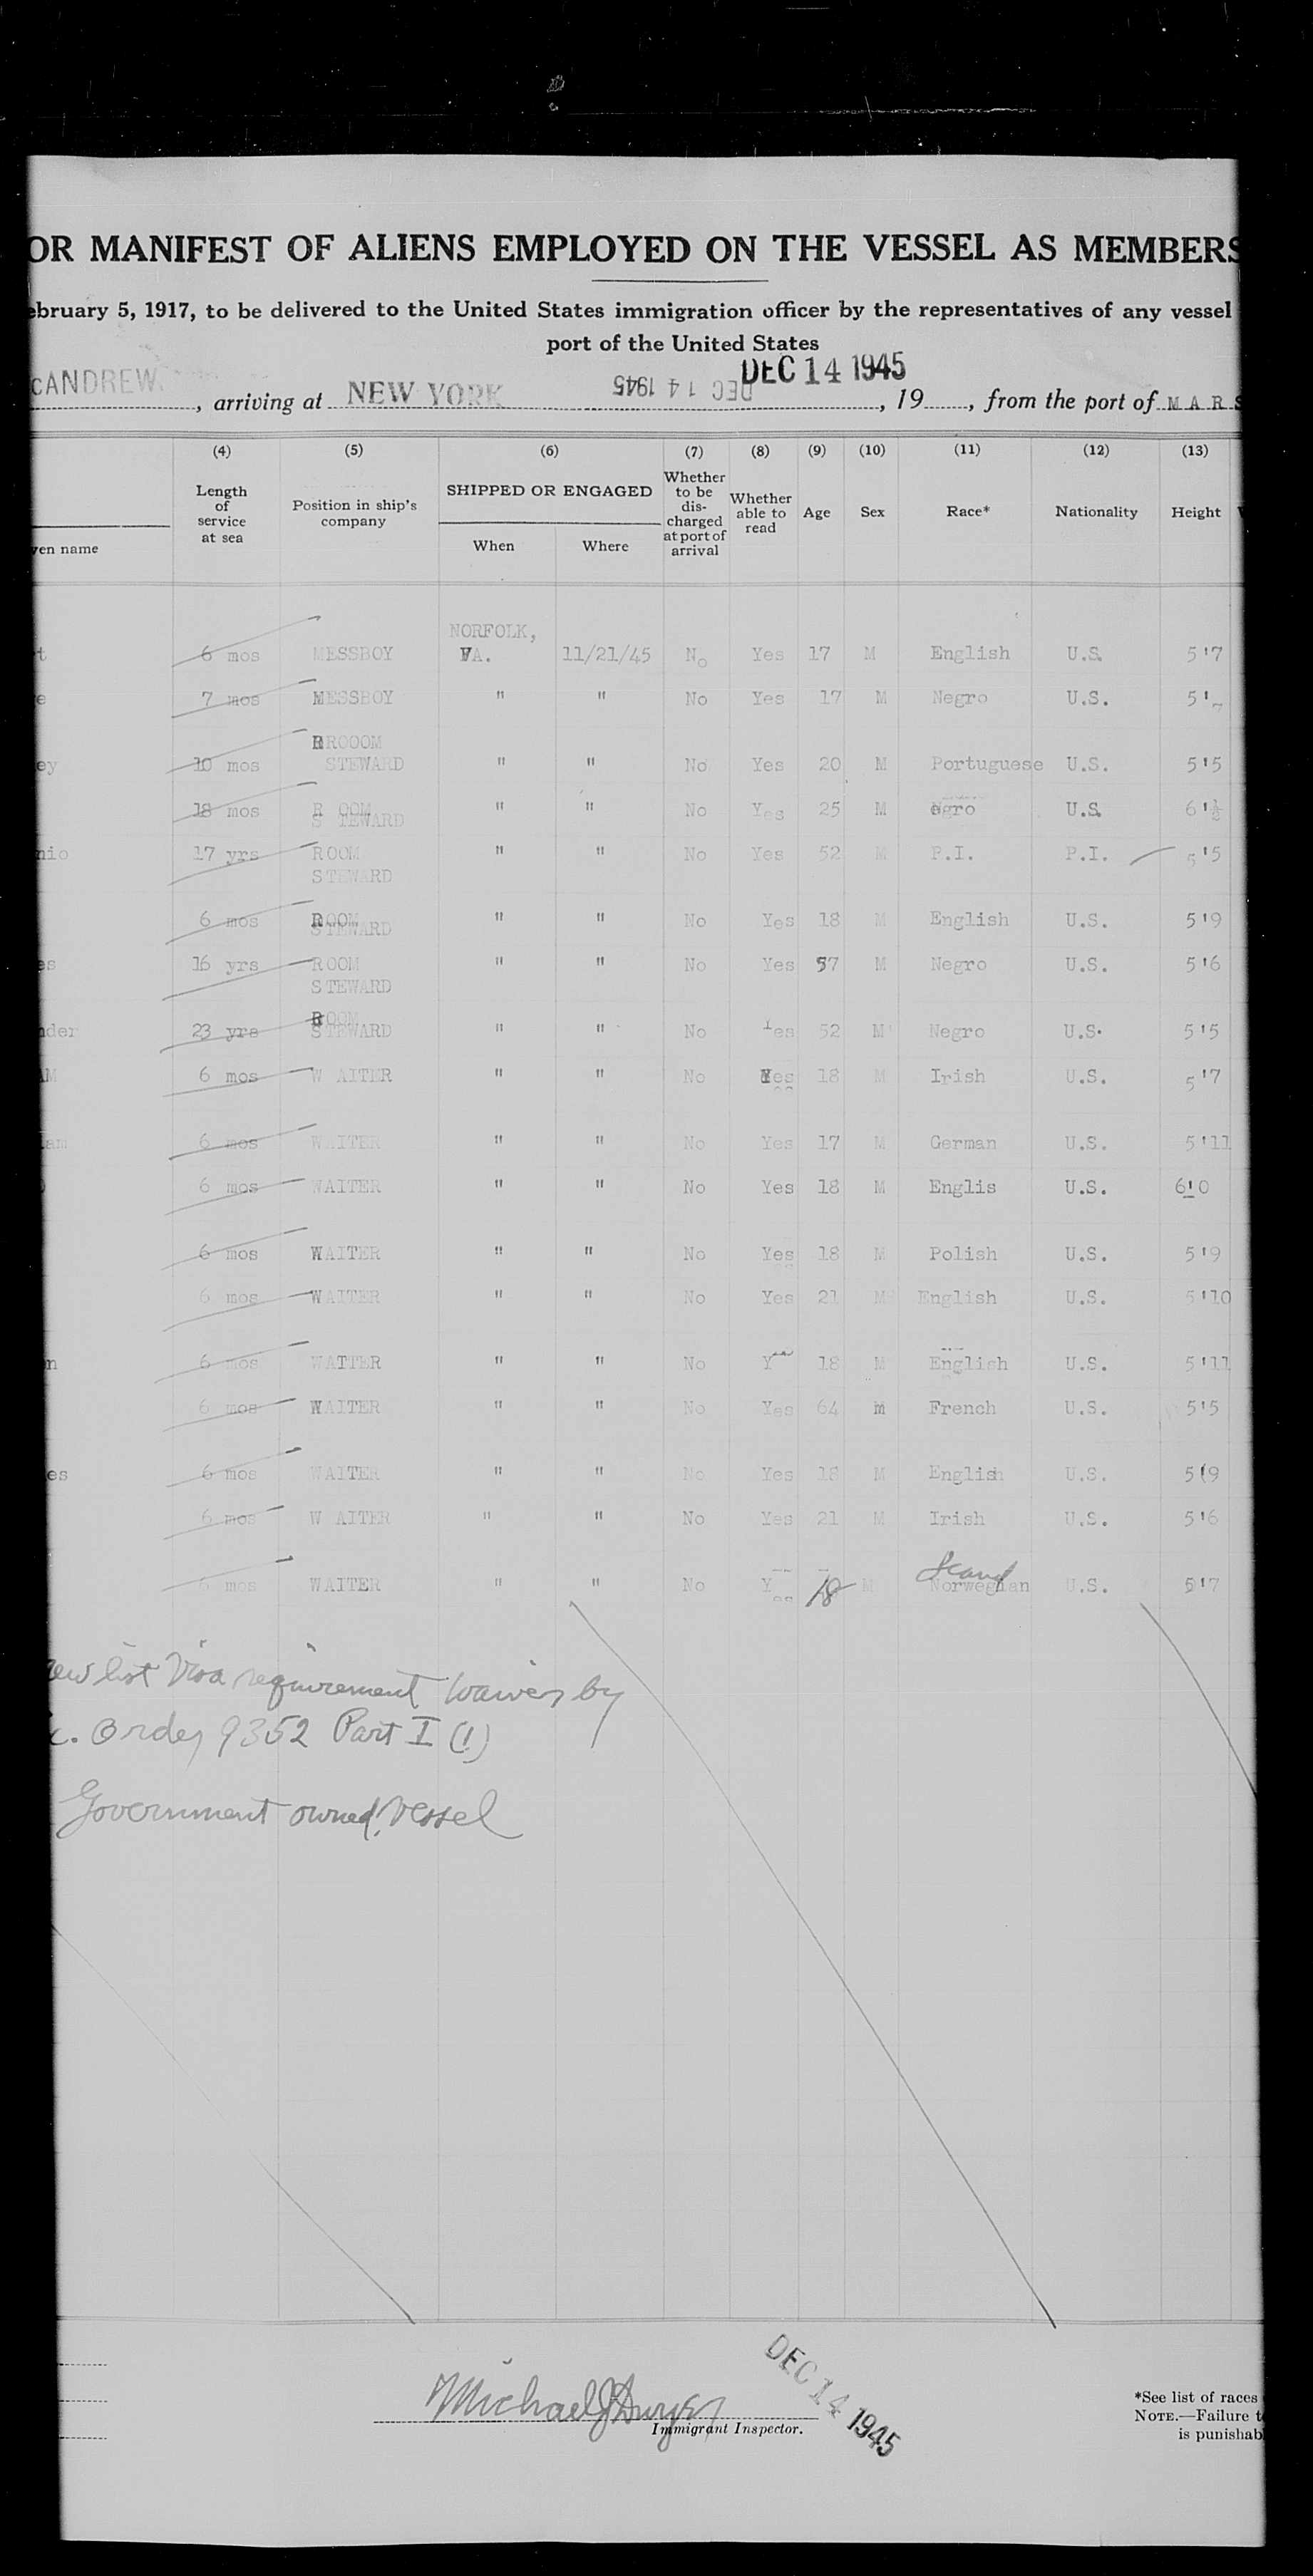 OR MANIFEST OF ALIENS EMPLOYED ON THE VESSEL AS MEMBERS
ebruary 5, 1917, to be delivered to the United States immigration officer by the representatives of any vessel
port of the United States
DEC 14 1945
cANDREW , arriving at NEW YORK DEC 14 1945 , 19 , from the port of MARS
(4) (5) (6) (7) (8) (9) (10) (11) (12) (13)
ven name Length of service at sea Position in ship's company SHIPPED OR ENGAGED When Where Whether to be discharged at port of arrival Whether able to read Age Sex Race* Nationality Height
NORFOLK,
t 6 mos MESSBOY VA. 11/21/45 No Yes 17 M English U.S. 5'7
e 7 mos MESSBOY " " No Yes 17 M Negro U.S. 5'
RROOOM
ey 10 mos STEWARD " " No Yes 20 M Portuguese U.S. 5'5
18 mos R OOM " " No Yes 25 M egro U.S. 6'½
S TEWARD
nio 17 yrs ROOM " " No Yes 52 M P.I. P.I. 5'5
STEWARD
6 mos ROOM " " No Yes 18 M English U.S. 5'9
STEWARD
es 16 yrs ROOM " " No Yes 57 M Negro U.S. 5'6
STEWARD
ROOM
nder 23 yrs STEWARD " " No Yes 52 M Negro U.S. 5'5
AM 6 mos W AITER " " No Yes 18 M Irish U.S. 5'7
iam 6 mos WAITER " " No Yes 17 M German U.S. 5'11
6 mos WAITER " " No Yes 18 M Englis U.S. 6'0
6 mos WAITER " " No Yes 18 M Polish U.S. 5'9
6 mos WAITER " " No Yes 21 M English U.S. 5'10
n 6 mos WAITER " " No Y 18 M English U.S. 5'11
6 mos WAITER " " No Yes 64 m French U.S. 5'5
es 6 mos WAITER " " No Yes 18 M English U.S. 5(9
6 mos W AITER " " No Yes 21 M Irish U.S. 5'6
Scand
6 mos WAITER " " No Yes 18 M Norwegian U.S. 5'7
rew list Visa requirement waived by
x. Order 9352 Part I (1)
Government owned vessel
DEC 14 1945
Michael J Dwyer
Immigrant Inspector.
*See list of races
NOTE.—Failure t
is punishab